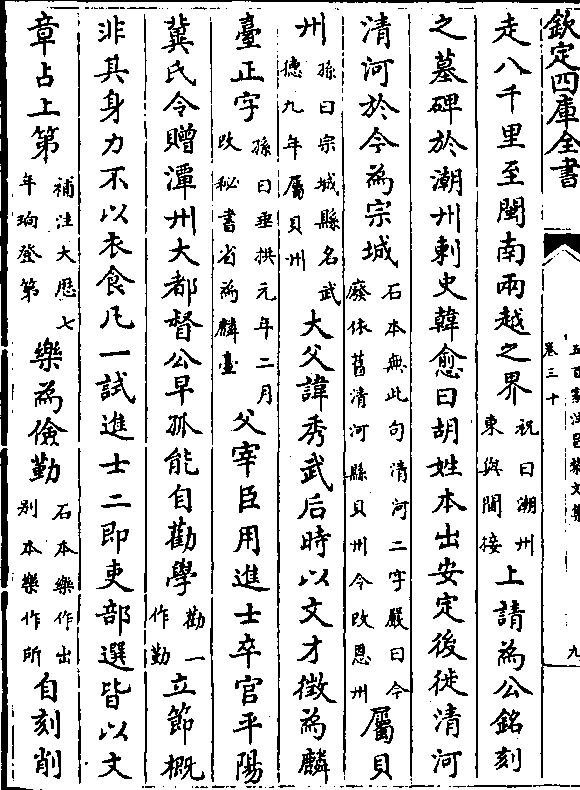 欽定四庫全書
卷三十
五百家注昌黎文集
九
走八千里至閩南兩越之界祝曰潮州東與閩接上請為公銘刻
之墓碑於潮州刺史韓愈曰胡姓本出安定後徙清河
清河於今為宗城石本無此句清河二字嚴曰今廢依舊清河縣貝州今改恩州屬貝
州孫曰宗城縣名武德九年屬貝州大父諱秀武后時以文才徵為麟
臺正字孫曰垂拱元年二月改秘書省為麟臺父宰臣用進士卒官平陽
冀氏令贈潭州大都督公早孤能自勸學勸一作勤立節概
非其身力不以衣食凡一試進士二即吏部選皆以文
章占上第補注大歴七年珦登第樂為儉勤石本樂作出别本樂作所自刻削